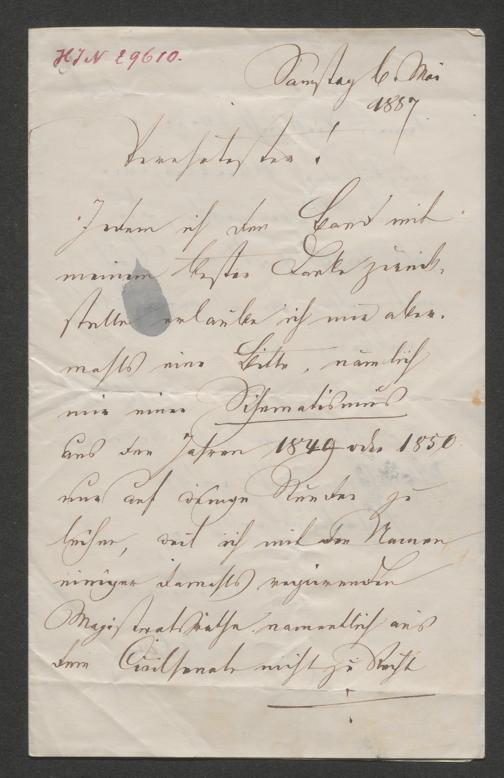 HIN 29610.
Samstag 6. Mai
1887
Verehrtester!
Indem ich den Band mit
meinem besten Danke zurück-
stelle erlaube ich mir aber-
mals eine Bitte, nämlich
mir einen Schematismus
aus den Jahren 1849 oder 1850
nur auf einige Stunden zu
leihen, weil ich mit den Namen
einiger damals regierenden
Magistratsräthe namentlich aus
dem Civilsenate nicht zu Recht